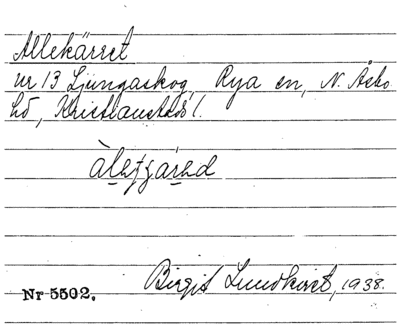 Allekärret
nr 13 Ljungaskog, Rya en, N. Åsbo
hd, Kristianstads l.
Birgit Lundkvist, 1938.
Nr 5502.